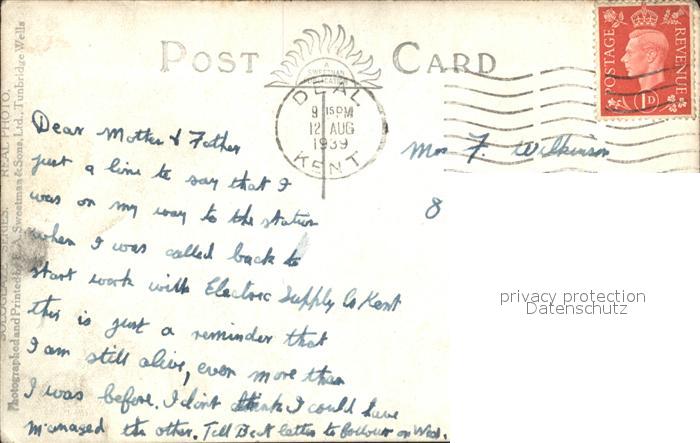 POST CARD
A
SWEETMAN
DEAL
9 15 PM
12 AUG
1939
KENT
POSTAGE
REVENUE
1D
SOLOGLAZE SERIES. REAL PHOTO.
Photographed and Printed by E.A. Sweetman & Sons, Ltd., Tunbridge Wells
Dear Mother & Father
just a line to say that I
was on my way to the station
when I was called back to
start work with Electric Supply Co Kent
this is just a reminder that
I am still alive, even more than
I was before. I don't think I could have
managed the other. Tell Bert letter to follow on Wed.
Mrs F. Wilkinson
8
privacy protection
Datenschutz